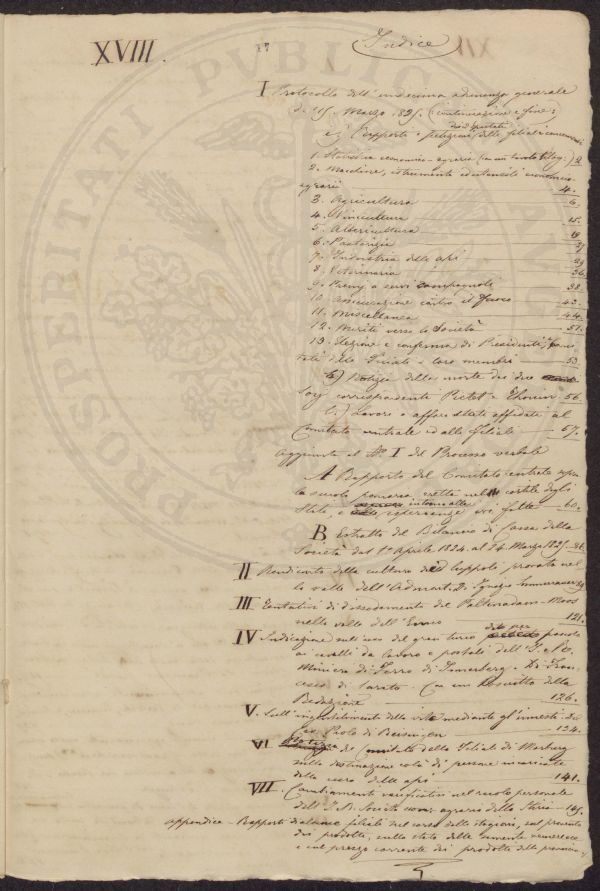 XVIII.
Indice
I Protocollo dell'undecima adunanza generale
di 15. Marzo 1825. (continuazione e fine:)
e) Rapporti e petizioni dei deputati delle filiali economiche
1. Statistica economico-agraria (con un tavola litog.) 2
2. Macchine, istrumenti ed utensili economico-
agrarii 4.
3. Agricoltura 6.
4. Vinicultura 15.
5. Albericultura
6. Pastorizia
7. Industria delle api 29
8. Veterinaria 36.
9. Premj a servi campagnoli 38.
10. Assicurazione contro il fuoco 43.
11. Miscellanea 44.
12. Meriti verso la Società 51.
13. Elezione e conferma di Presidenti, Comi-
tati delle filiali e loro membri 53
b) Notizia della morte dei due
Socj corrispondenti Pictet e Thouin 56.
c) Lavori e affari state affidati al
Comitato centrale ed alle filiali 57.
Aggiunte al No. I del Processo verbale
A Rapporto del Comitato centrale sopra
la scuola pomaria eretta nel cortile degli
Stati, e intorno alle esperienze ivi fatte 60.
B Estratto del Bilancio di Cassa della
Società dal 1o Aprile 1824. al 14. Marzo 1825.
II Rendiconto della cultura del luppolo provata nel-
la valle dell' D. Ignazio
III Tentativi di dissodamento del Paltenradam-Moos
nella valle dell'Enns 121.
IV Indicazione sull'uso del gran turco dato per pasto
ai cavalli da lavoro e postali dell'I. R.
Miniera di Ferro di di Fran-
cesco di Con un Rescritto della
Redazione 126.
V. Sull' della vite mediante gl'innesti di
Paolo di 134.
VI Notizia di Comitato della Filiale di Marburg
sulla destinazione colà di persone incaricate
della cura delle api 141.
VII. Cambiamenti verificatisi nel ruolo personale
dell'I. R. Società econ: agraria della Stiria 145.
appendice - Rapporti di alcune filiali sul corso delle stagioni, sul provento
dei prodotti, sullo stato delle semente
e sul prezzo corrente dei prodotti delle provincia